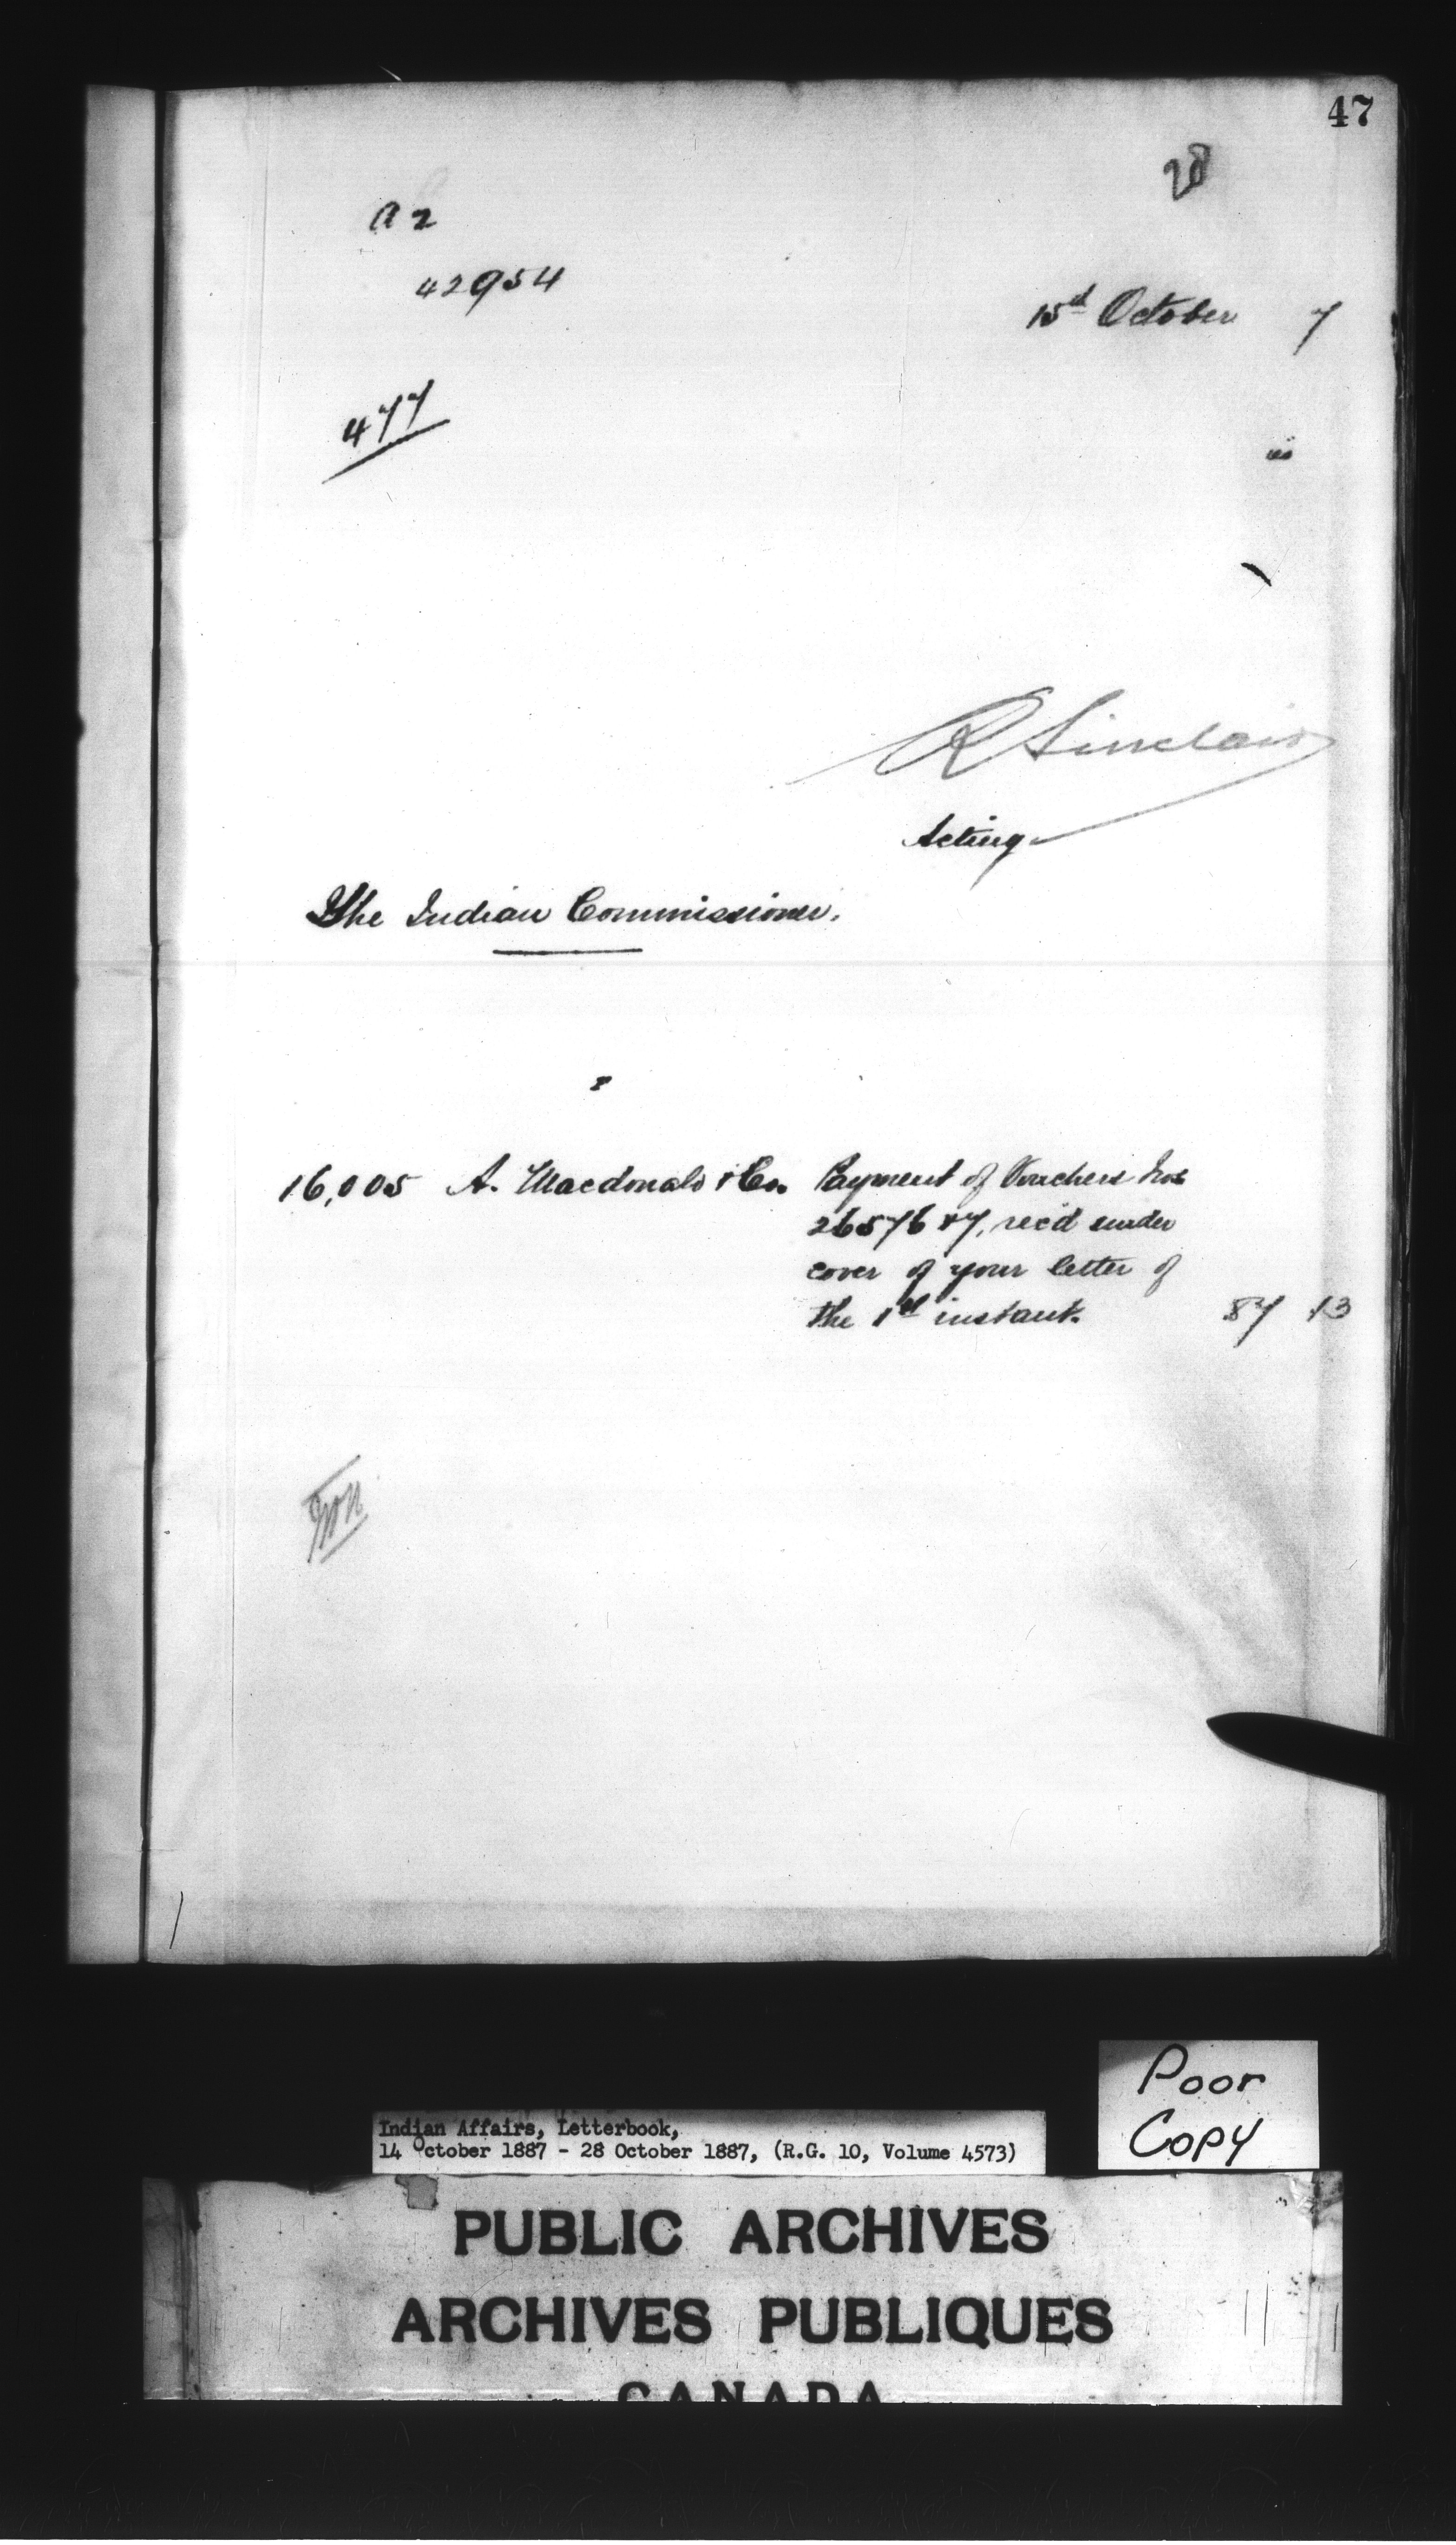 47
28
a 2
42954
15th October 7
477
is
R Sinclair
Acting
The Indian Commissioner.
16,005 A. Macdonald & Co. Payment of Vouchers Nos
26576 & 7, rec'd under
cover of your letter of
the 1st instant. 87 13
Poor
Copy
Indian Affairs, Letterbook,
14 October 1887 - 28 October 1887, (R.G. 10, Volume 4573)
PUBLIC ARCHIVES
ARCHIVES PUBLIQUES
CANADA